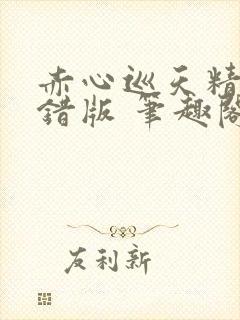 赤心巡天精
错版 笔趣阁
友利新